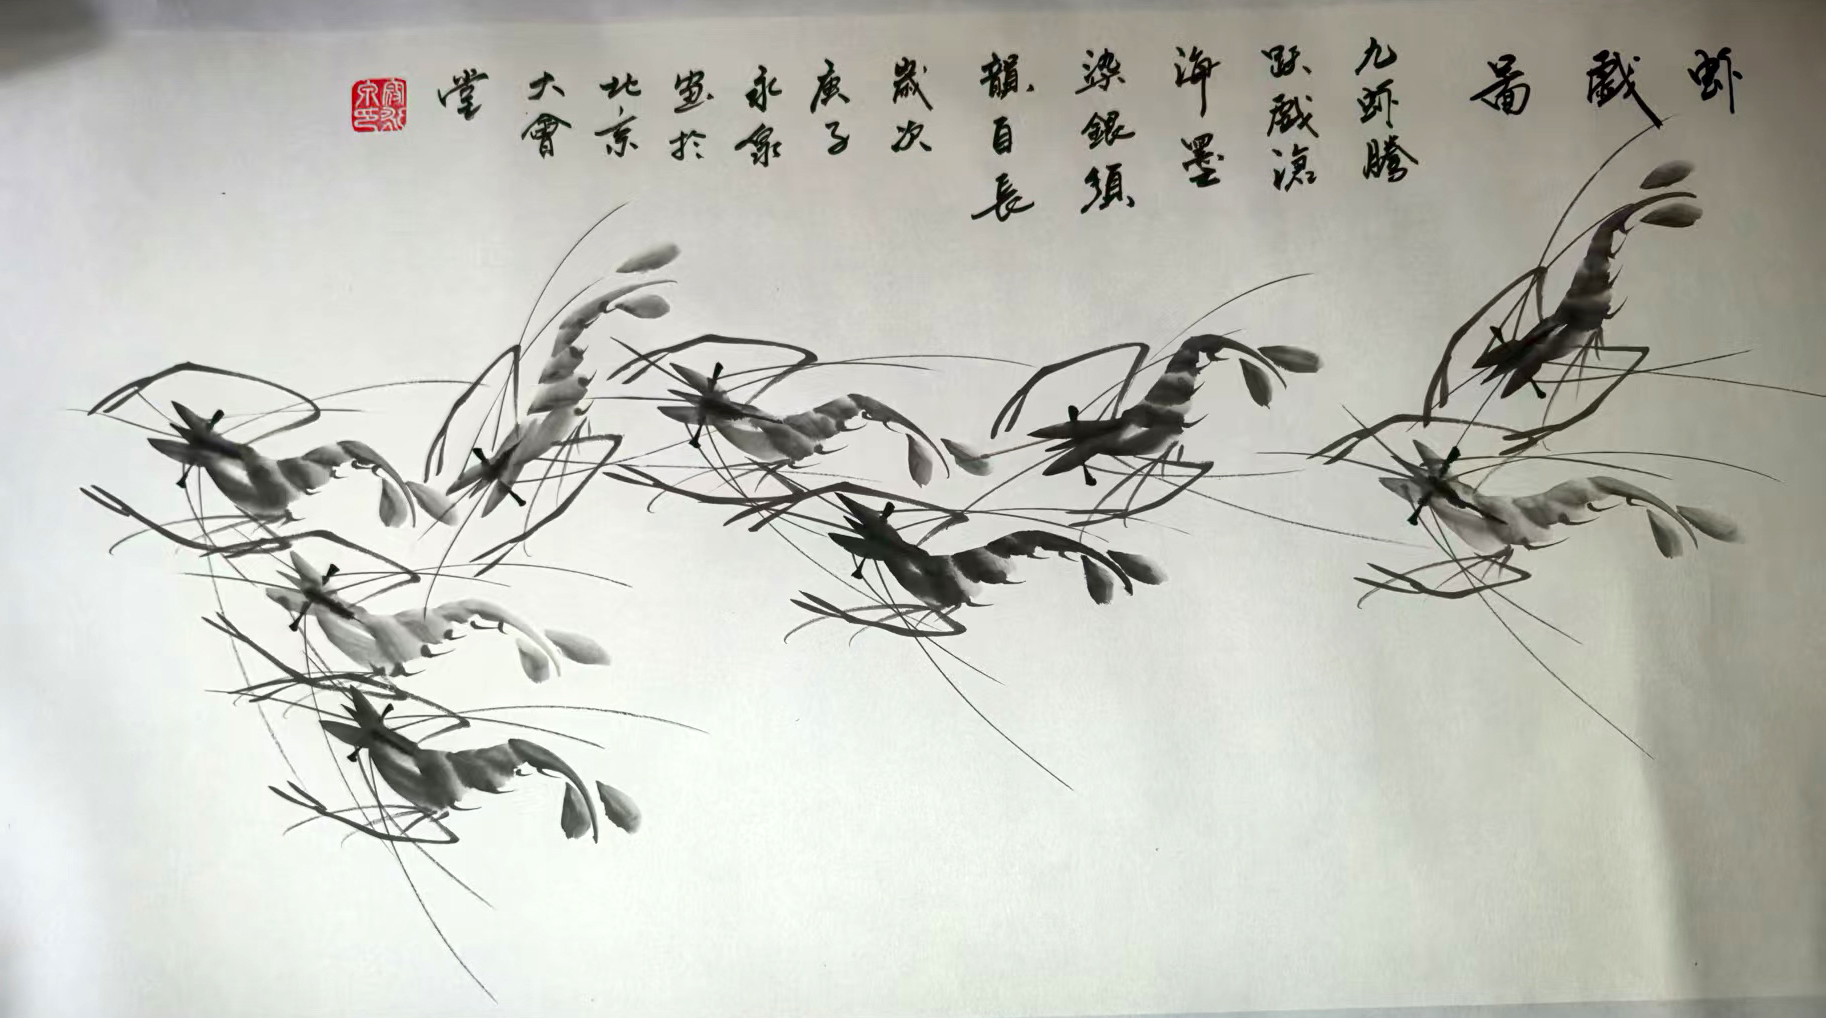 虾戲圖
九虾騰
跃戲滄
海墨
染銀須
韻自長
歲次
庚子
永泉
画於
北京
大會
堂